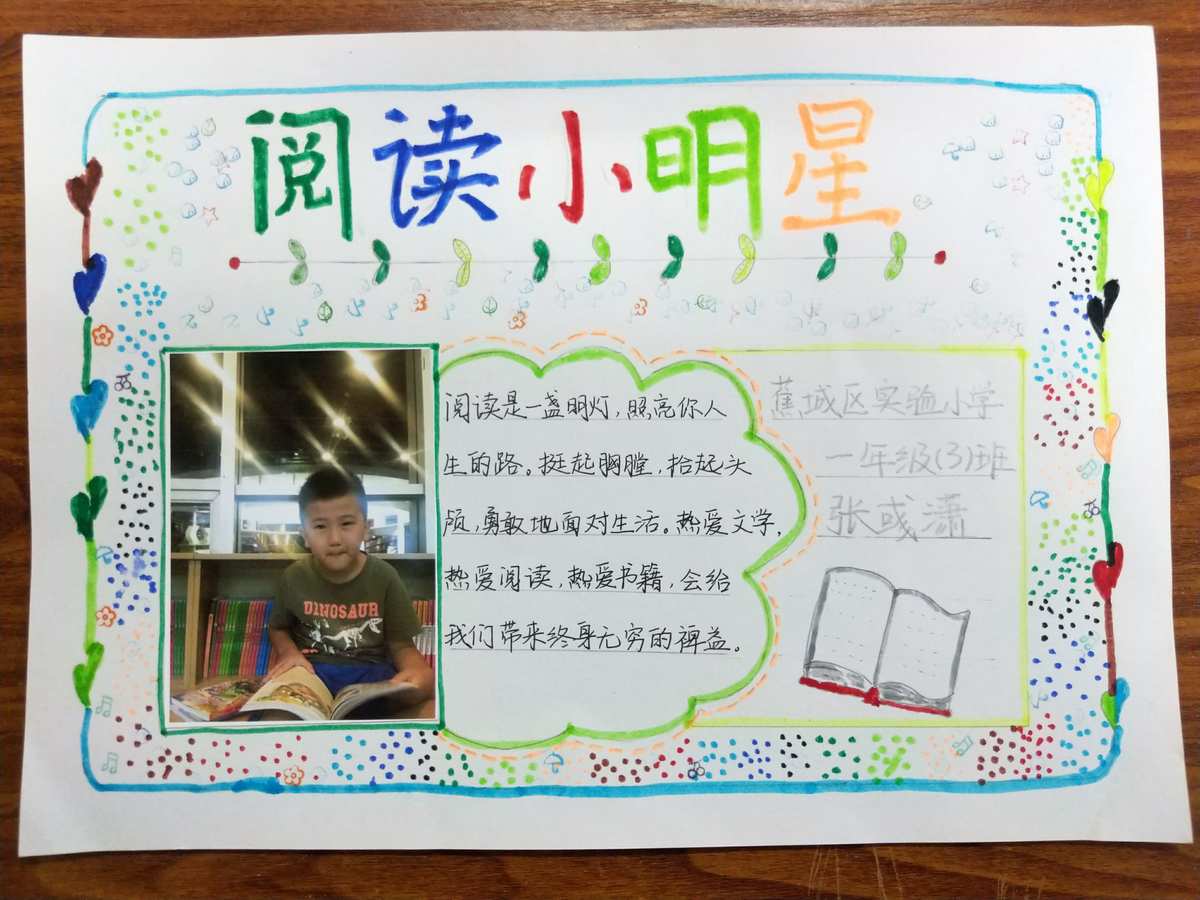 阅读小明星
阅读是一盏明灯，照亮你人
生的路。挺起胸膛，抬起头
颅，勇敢地面对生活。热爱文学，
热爱阅读，热爱书籍，会给
我们带来终身无穷的裨益。
蕉城区实验小学
一年级(3)班
张彧潇
DINOSAUR